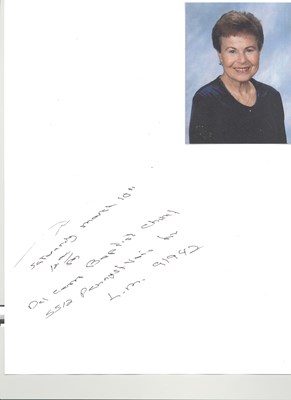 Saturday march 10th
Del Cerro Baptist Church
5512 Pennsylvania
L.M. 91942